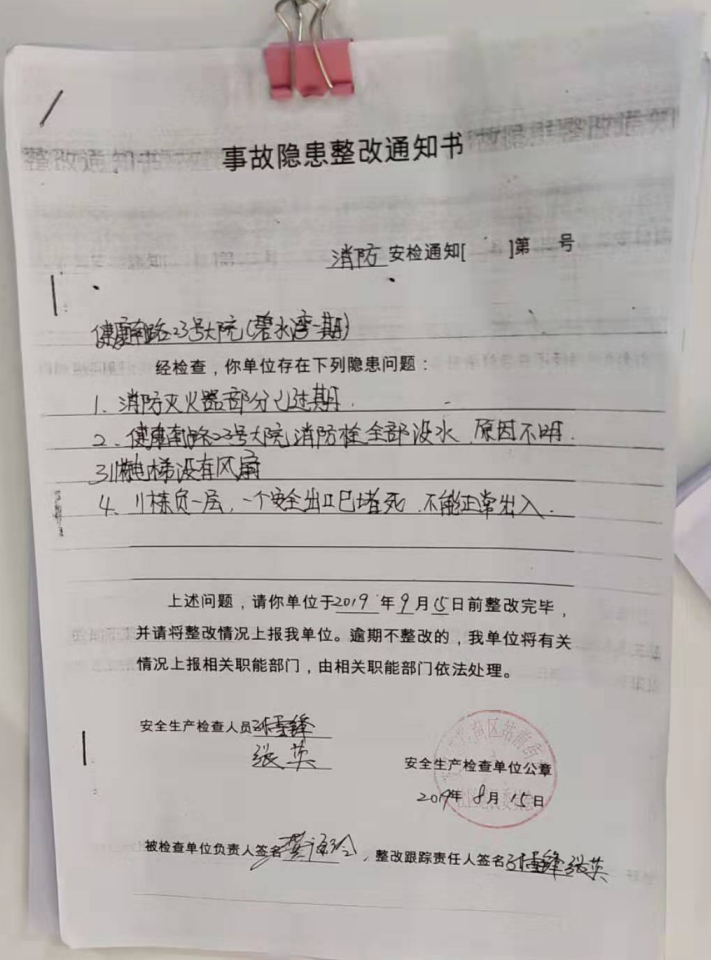 事故隐患整改通知书
消防 安检通知[ ]第 号
健康南路23号大院(碧水湾一期)
经检查，你单位存在下列隐患问题：
1、消防灭火器部分已过期.
2、健康南路23号大院消防栓全部没水 原因不明.
电梯没有风扇
4、11栋负一层，一个安全出口已堵死 不能正常出入.
上述问题，请你单位于2019年9月15日前整改完毕，
并请将整改情况上报我单位。逾期不整改的，我单位将有关
情况上报相关职能部门，由相关职能部门依法处理。
安全生产检查人员
张英
安全生产检查单位公章
2019年8月15日
被检查单位负责人签名 ，整改跟踪责任人签名 张英